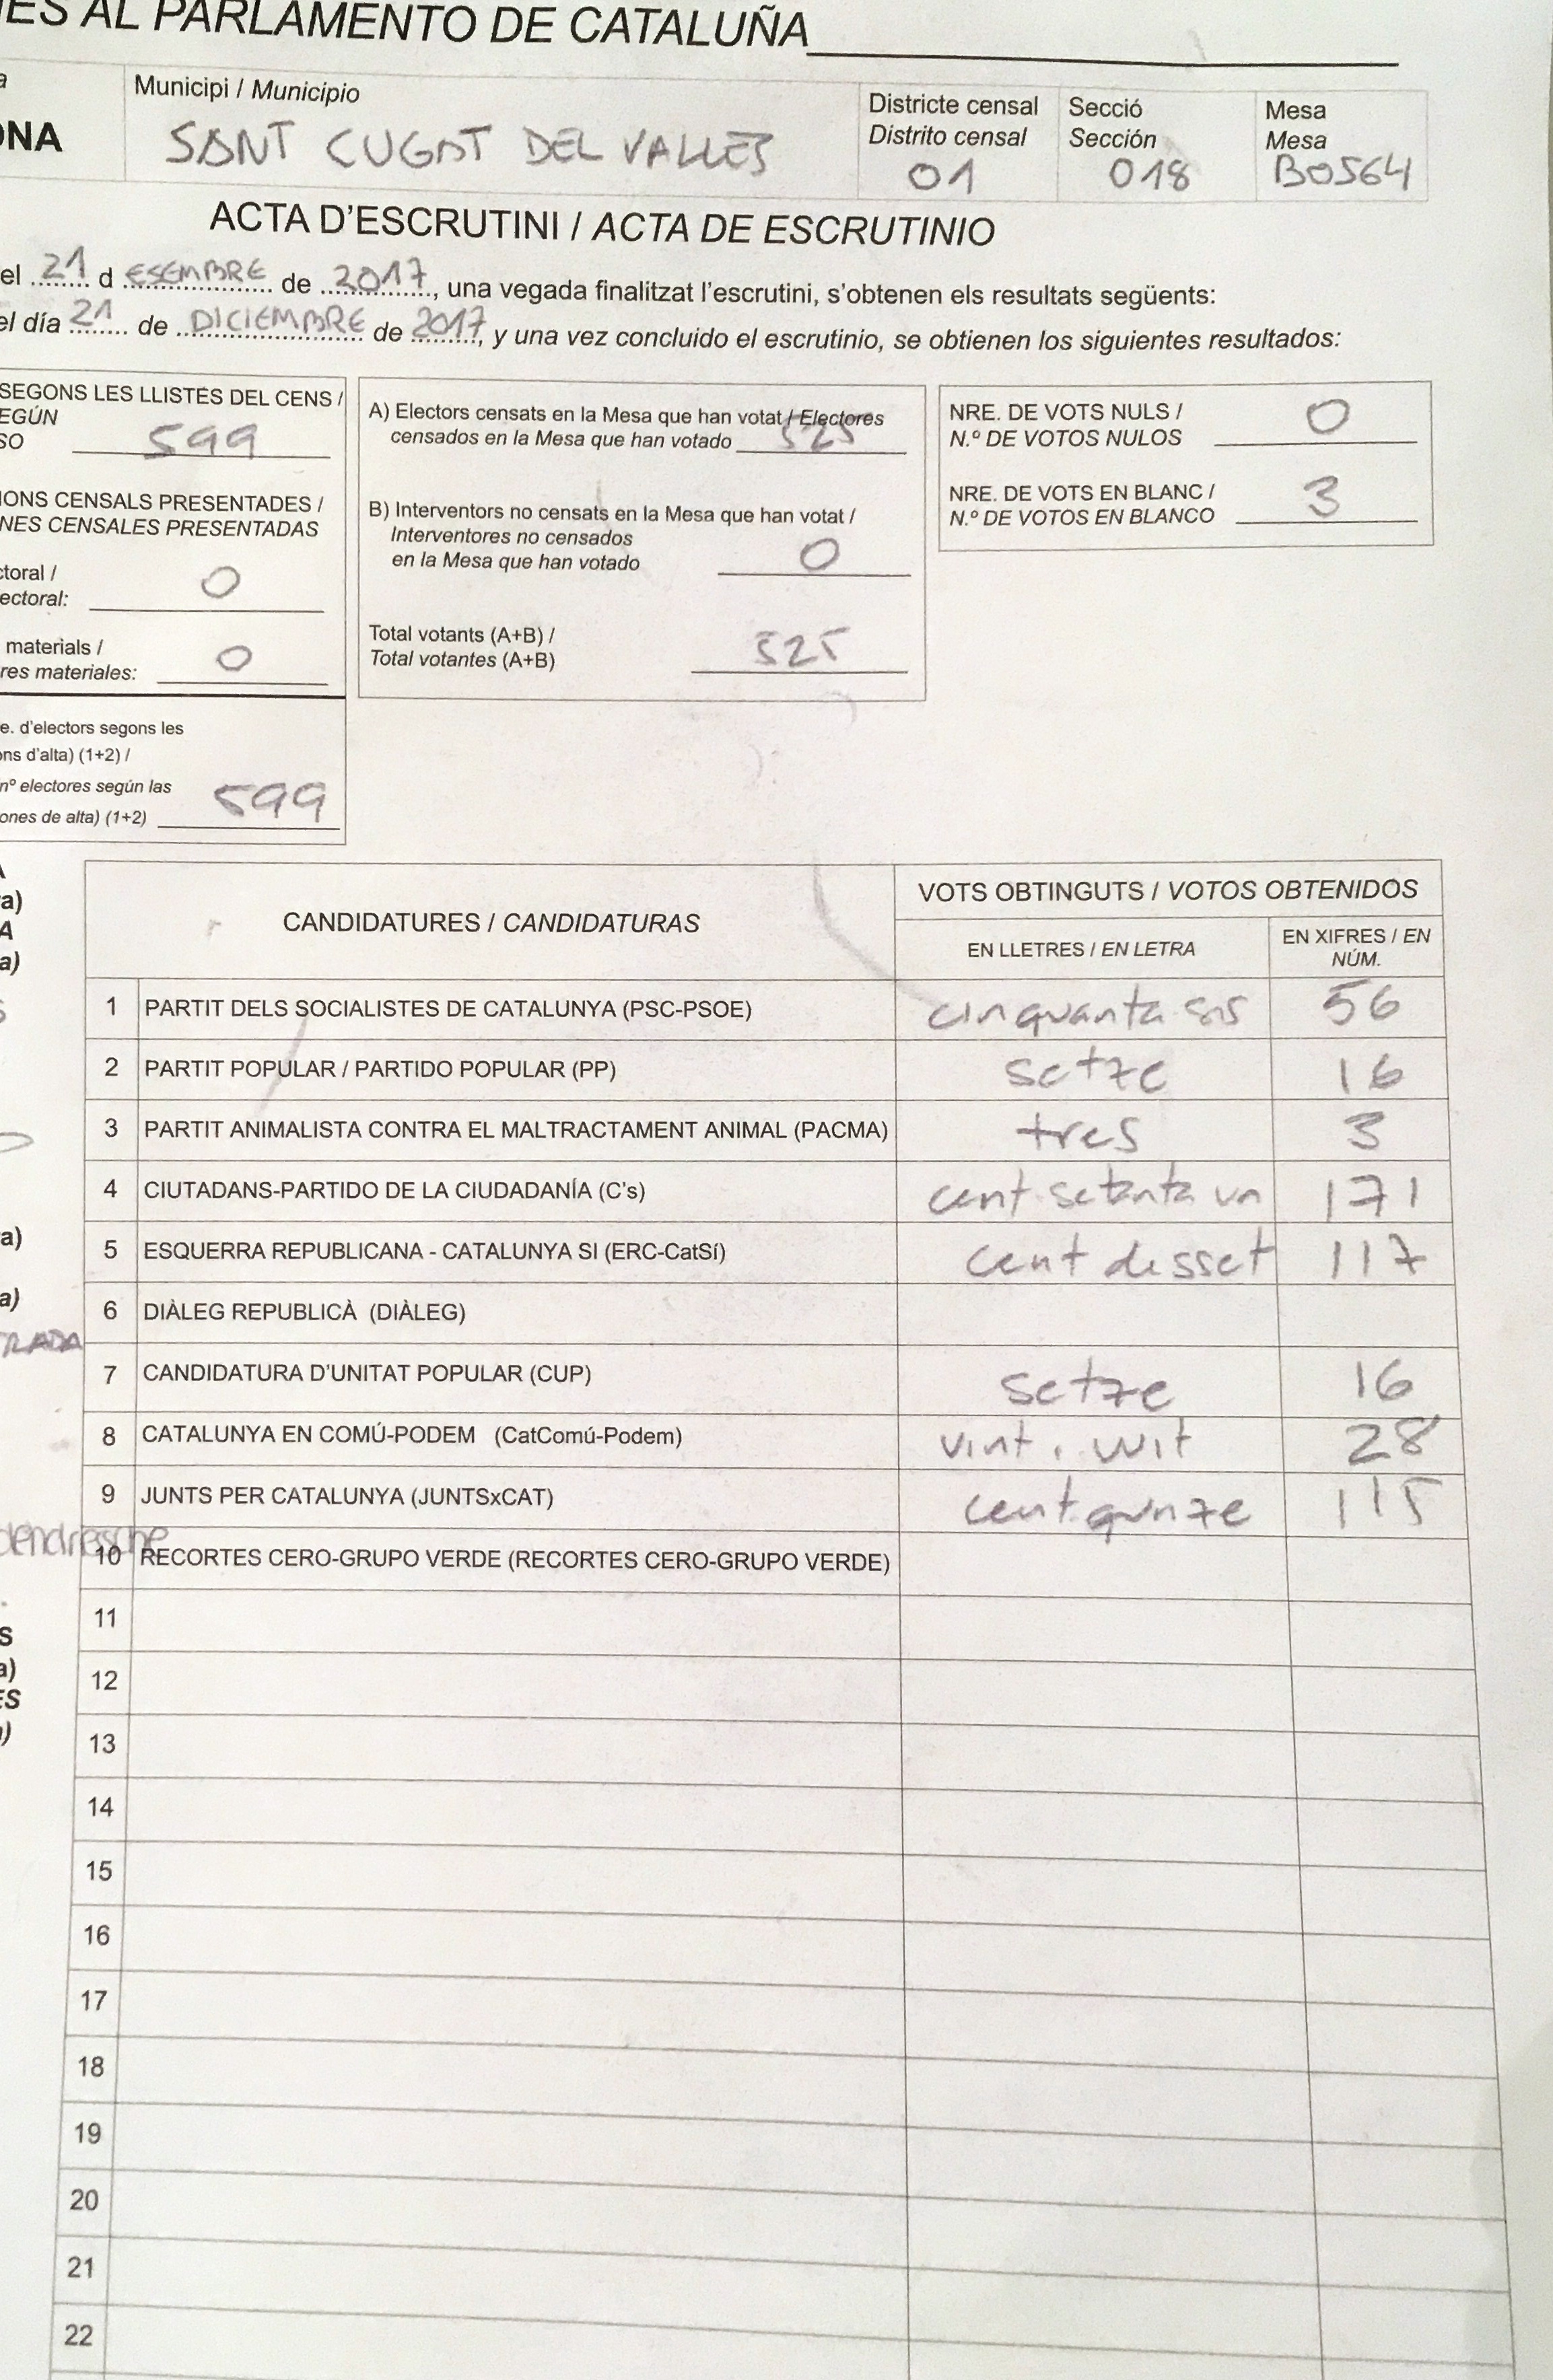 ES AL PARLAMENTO DE CATALUÑA
ONA
Municipi / Municipio
SANT CUGAT DEL VALLES
Districte censal
Distrito censal
01
Secció
Sección
018
Mesa
Mesa
B0564
ACTA D'ESCRUTINI / ACTA DE ESCRUTINIO
el 21 d ESEMBRE de 2017, una vegada finalitzat l'escrutini, s'obtenen els resultats següents:
el día 21 de DICIEMBRE de 2017, y una vez concluido el escrutinio, se obtienen los siguientes resultados:
SEGONS LES LLISTES DEL CENS /
EGÚN
SO 599
IONS CENSALS PRESENTADES /
NES CENSALES PRESENTADAS
ctoral /
ectoral: 0
materials /
res materiales: 0
e. d'electors segons les
ns d'alta) (1+2) /
nº electores según las
ones de alta) (1+2) 599
A) Electors censats en la Mesa que han votat / Electores
censados en la Mesa que han votado 525
B) Interventors no censats en la Mesa que han votat /
Interventores no censados
en la Mesa que han votado 0
Total votants (A+B) /
Total votantes (A+B) 525
NRE. DE VOTS NULS /
N.º DE VOTOS NULOS 0
NRE. DE VOTS EN BLANC /
N.º DE VOTOS EN BLANCO 3
CANDIDATURES / CANDIDATURAS
VOTS OBTINGUTS / VOTOS OBTENIDOS
EN LLETRES / EN LETRA
EN XIFRES / EN
NÚM.
1 PARTIT DELS SOCIALISTES DE CATALUNYA (PSC-PSOE) cinquanta sis 56
2 PARTIT POPULAR / PARTIDO POPULAR (PP) setze 16
3 PARTIT ANIMALISTA CONTRA EL MALTRACTAMENT ANIMAL (PACMA) tres 3
4 CIUTADANS-PARTIDO DE LA CIUDADANÍA (C's) cent setanta un 171
5 ESQUERRA REPUBLICANA - CATALUNYA SI (ERC-CatSí) cent disset 117
6 DIÀLEG REPUBLICÀ (DIÀLEG)
7 CANDIDATURA D'UNITAT POPULAR (CUP) setze 16
8 CATALUNYA EN COMÚ-PODEM (CatComú-Podem) vint i vuit 28
9 JUNTS PER CATALUNYA (JUNTSxCAT) cent quinze 115
10 RECORTES CERO-GRUPO VERDE (RECORTES CERO-GRUPO VERDE)
11
12
13
14
15
16
17
18
19
20
21
22